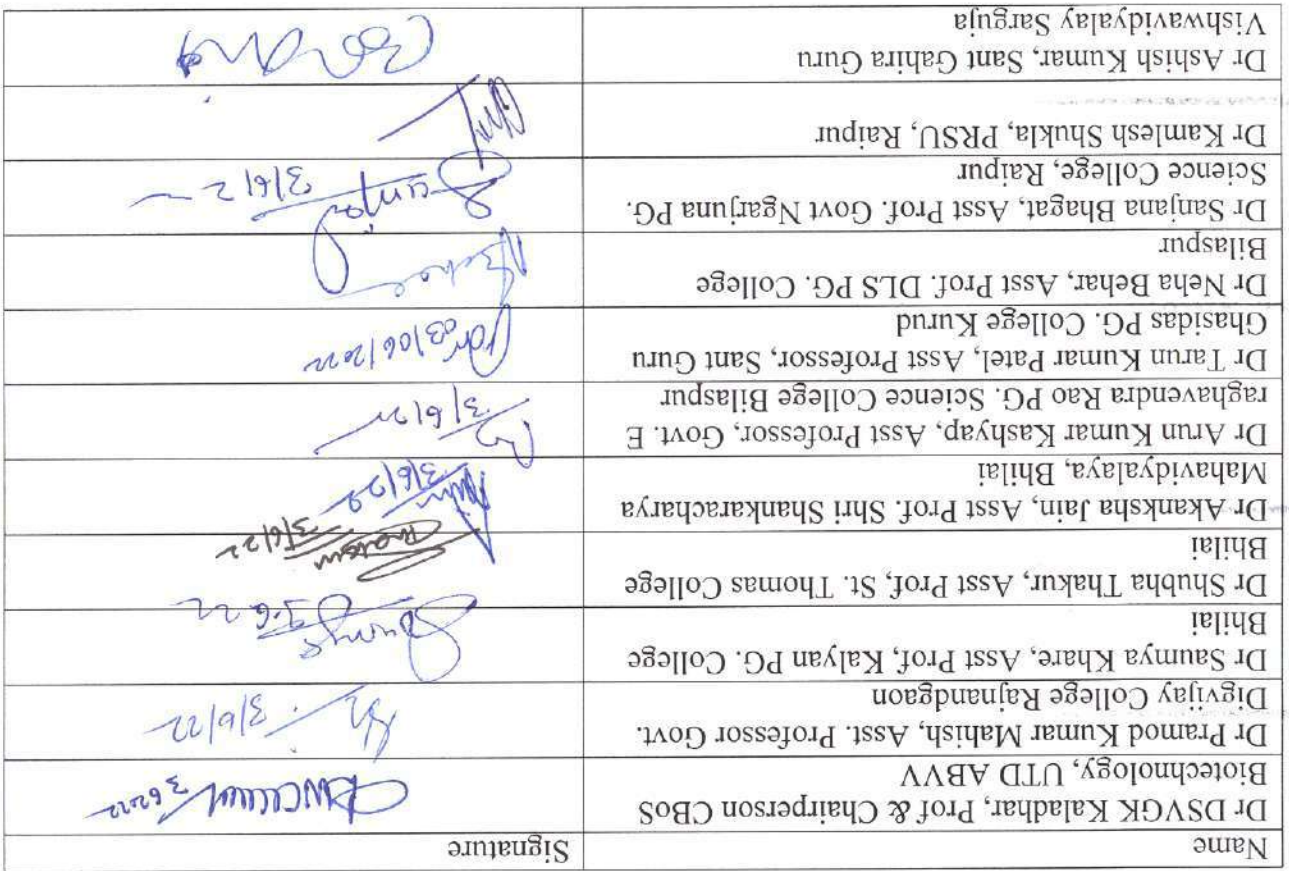 Name Signature
Dr DSVGK Kaladhar, Prof & Chairperson CBoS
Biotechnology, UTD ABVV
3622
Dr Pramod Kumar Mahish, Asst. Professor Govt.
Digvijay College Rajnandgaon
3/6/22
Dr Saumya Khare, Asst Prof, Kalyan PG. College
Bhilai
3.6.22
Dr Shubha Thakur, Asst Prof, St. Thomas College
Bhilai
3/6/22
Dr Akanksha Jain, Asst Prof. Shri Shankaracharya
Mahavidyalaya, Bhilai
3/6/22
Dr Arun Kumar Kashyap, Asst Professor, Govt. E
raghavendra Rao PG. Science College Bilaspur
3/6/22
Dr Tarun Kumar Patel, Asst Professor, Sant Guru
Ghasidas PG. College Kurud
03/06/2022
Dr Neha Behar, Asst Prof. DLS PG. College
Bilaspur
Dr Sanjana Bhagat, Asst Prof. Govt Ngarjuna PG.
Science College, Raipur
3/6/2
Dr Kamlesh Shukla, PRSU, Raipur
Dr Ashish Kumar, Sant Gahira Guru
Vishwavidyalay Sarguja